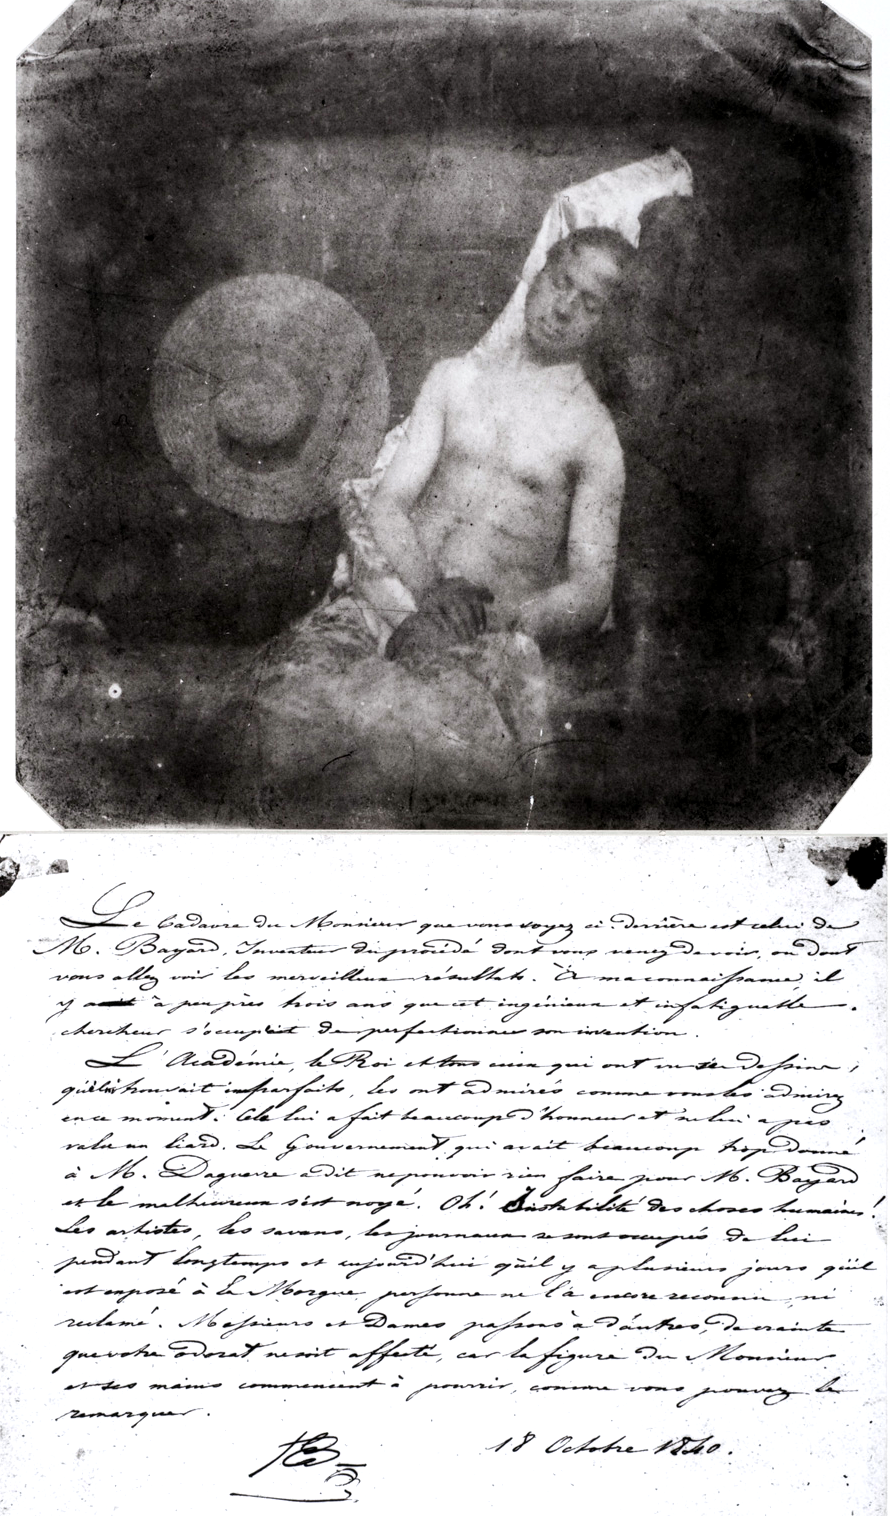 Le Cadavre du Monsieur que vous voyez ci-derrière est celui de
M. Bayard, Inventeur du procédé dont vous venez de voir, ou dont
vous allez voir les merveilleux résultats. À ma connaissance, il
y a à peu près trois ans que cet ingénieux et infatiguable
chercheur s'occupait de perfectionner son invention.
L'Académie, le Roi et tous ceux qui ont vu ses dessins,
qu'il trouvait imparfaits, les ont admirés comme vous les admirez
en ce moment. Cela lui a fait beaucoup d'honneur et ne lui a pas
valu un liard. Le Gouvernement, qui avait beaucoup trop donné
à M. Daguerre a dit ne pouvoir rien faire pour M. Bayard
et le malheureux s'est noyé. Oh! Instabilité des choses humaines!
Les artistes, les savans, les journaux se sont occupés de lui
pendant longtemps et aujourd'hui qu'il y a plusieurs jours qu'il
est exposé à la Morgue, personne ne l'a encore reconnu, ni
réclamé. Messieurs et Dames, passons à d'autres, de crainte
que votre odorat ne soit affecté, car la figure du Monsieur
et ses mains commencent à pourrir, comme vous pouvez le
remarquer.
HB
18 Octobre 1840.